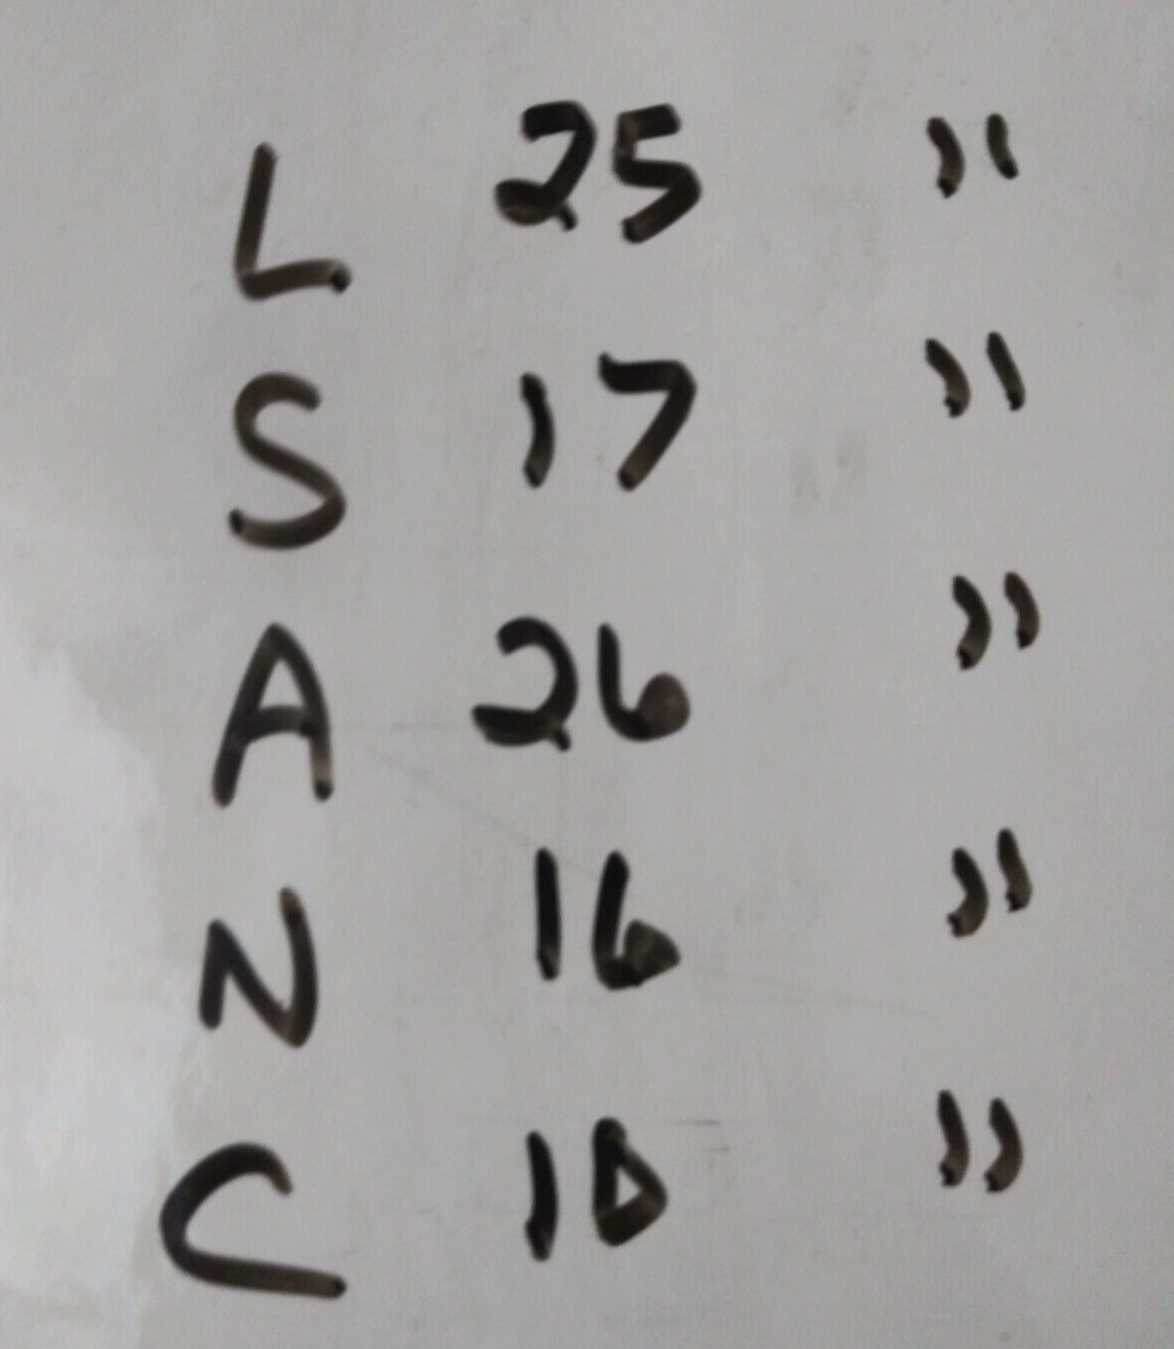 L 25 "
S 17 "
A 26 "
N 16 "
C 10 "